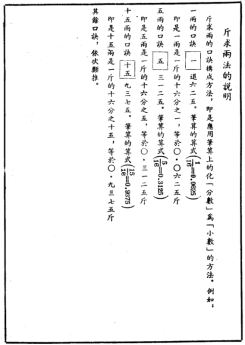 斤求兩法的說明
斤求兩的口訣構成方法，即是應用筆算上的化「分數」爲「小數」的方法。例如：
一兩的口訣 一 退六二五。筆算的算式(1/16=0.0625)
即是一兩是一斤的十六分之一，等於〇・〇六二五斤
五兩的口訣 五 三一二五。筆算的算式(5/16=0.3125)
即是五兩是一斤的十六分之五，等於〇・三一二五斤
十五兩的口訣 十五 九三七五。筆算的算式(15/16=0.9375)
即是十五兩是一斤的十六分之十五，等於〇・九三七五斤
其餘口訣，依次類推。